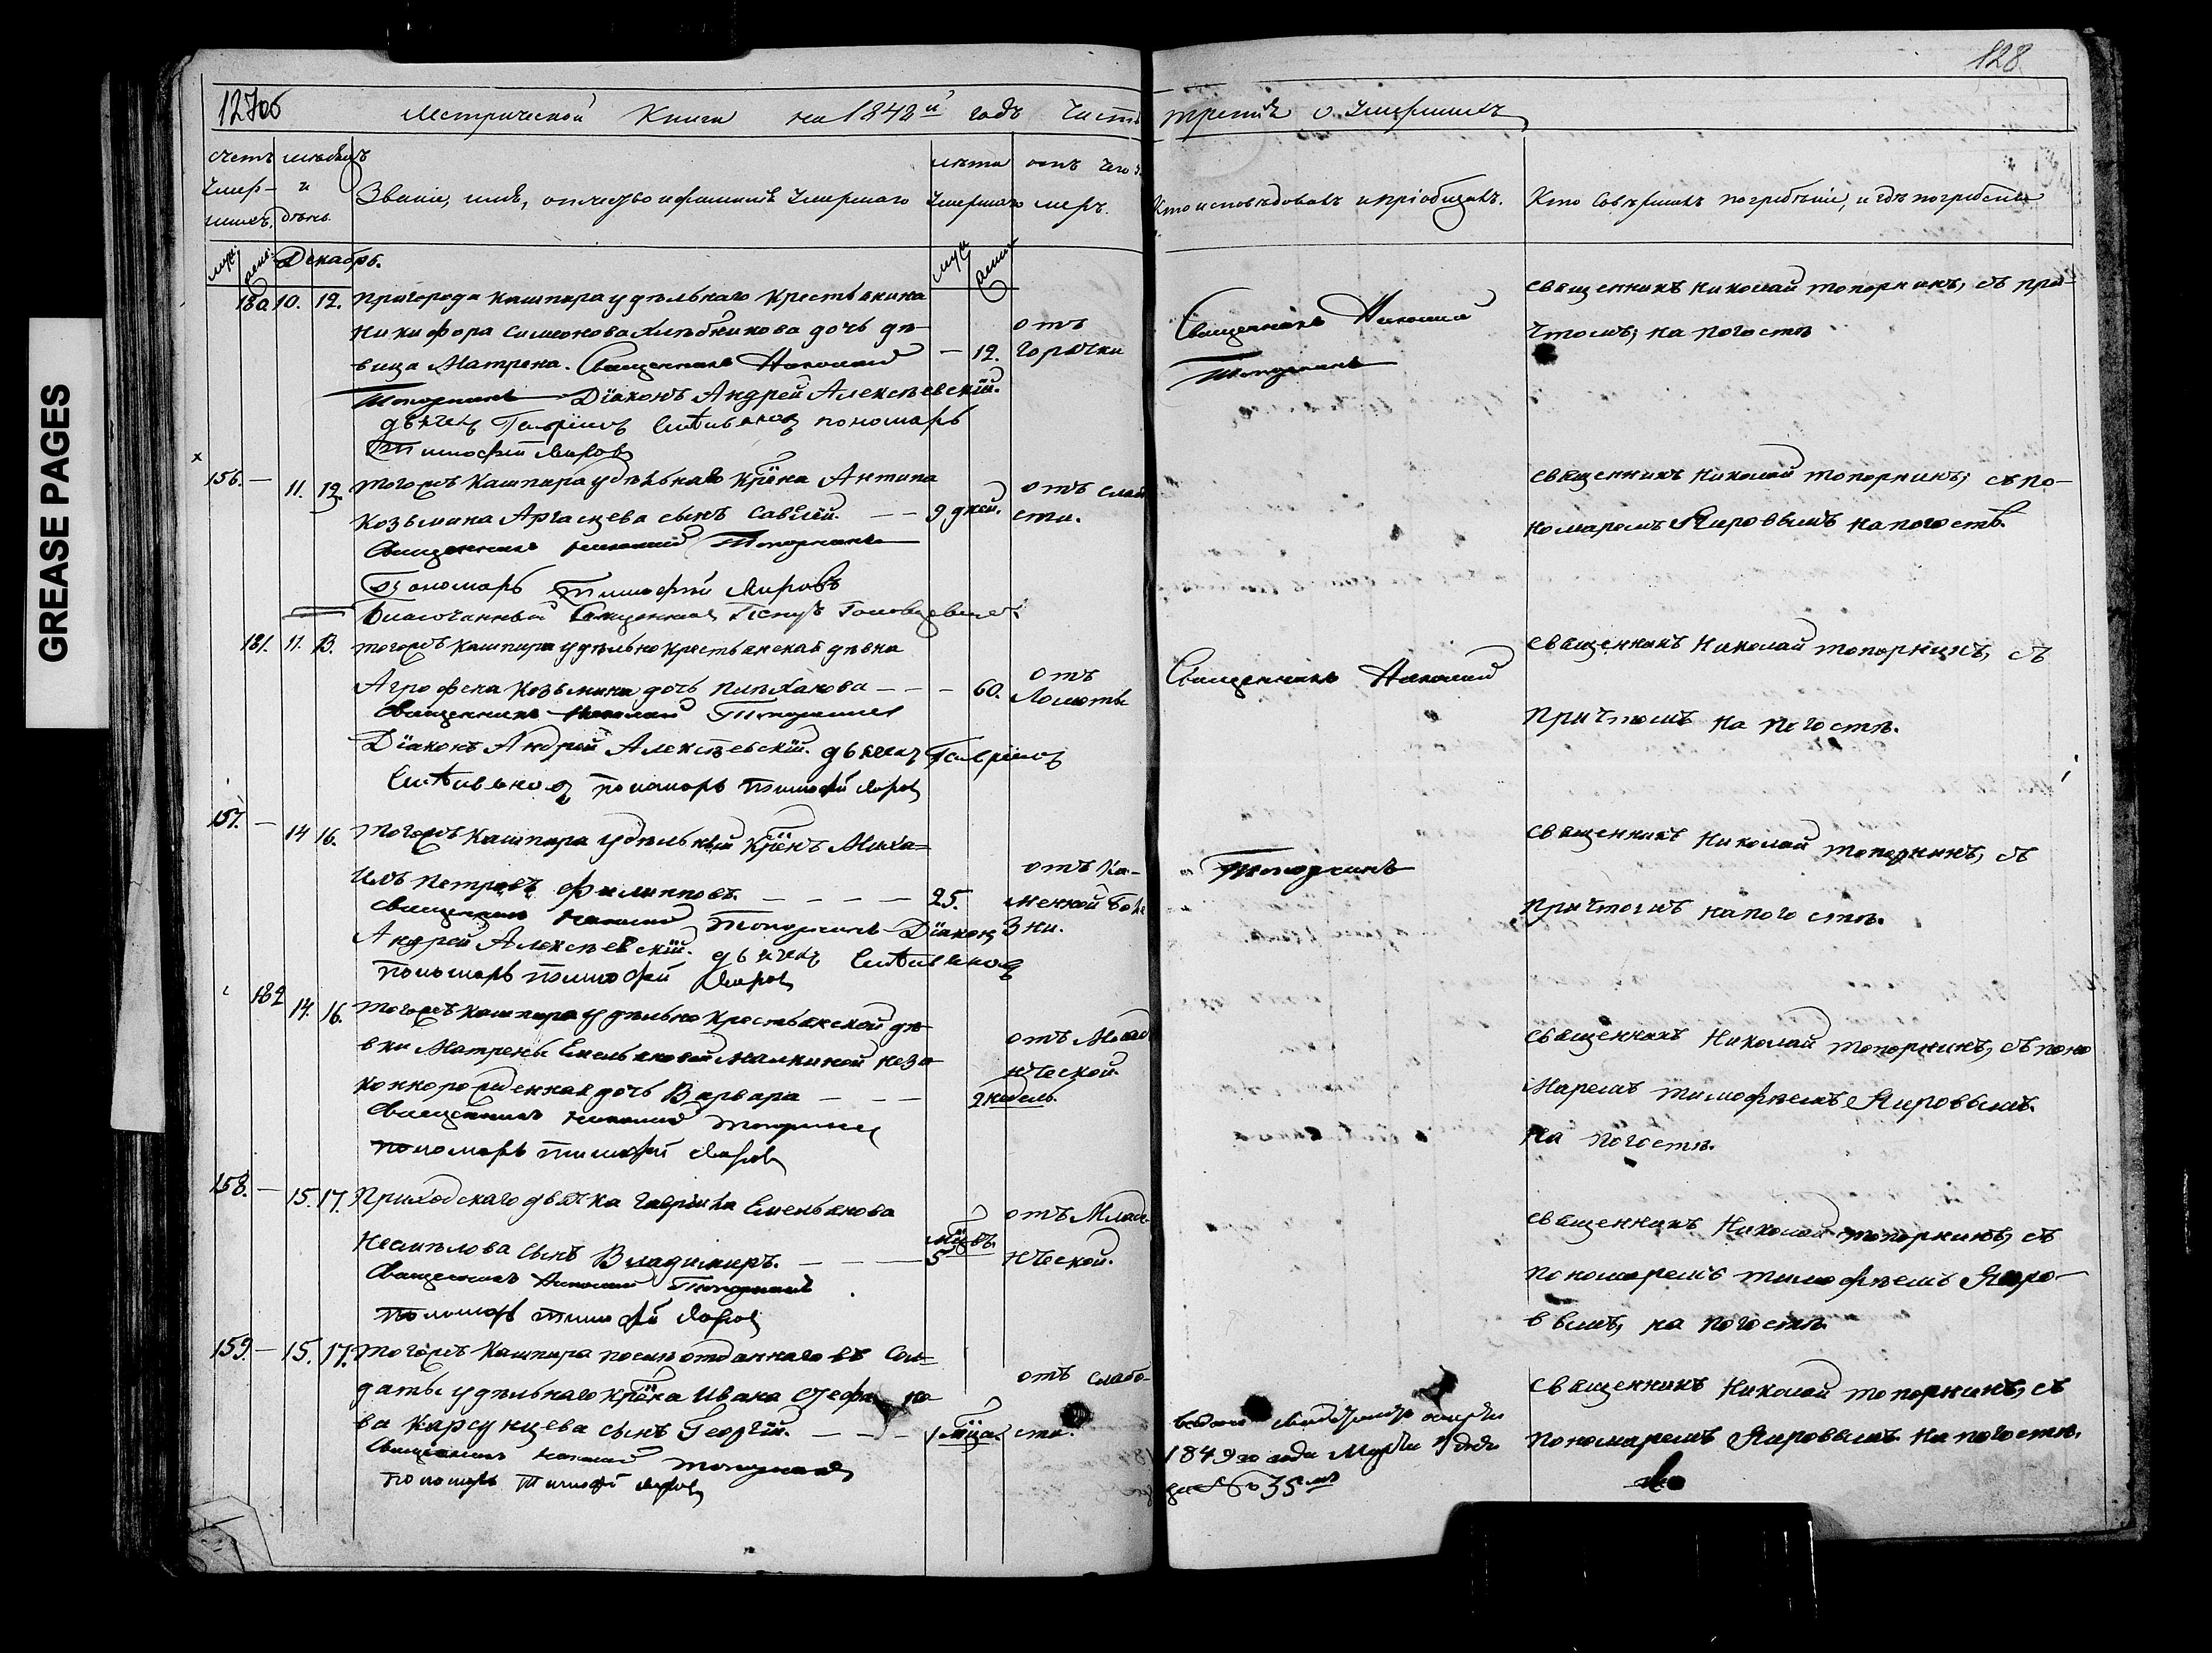 GREASE PAGES
127об
128
Метрической Книги на 1842й годъ Часть третія о Умершихъ
Счетъ Умер-шихъ.
мѣсяцъ и день.
Званіе, имя, отчество и фамилія Умершаго
лѣта Умершаго
отъ чего умеръ.
Кто исповѣдовалъ и пріобщалъ.
Кто Совершалъ погребеніе, и гдѣ погребены
муж. женс. Декабрь. муж женс
180. 10. 12. пригорода Кашпира удѣльнаго Крестьянина
Никифора Симонова Хлѣбникова дочь дѣ-
вица Матрена. Священникъ Николай
Топорнинъ Діаконъ Андрей Алексѣевскій.
дьячекъ Гавріилъ пономарь
Тимофей Яировъ
— 12.
отъ
горячки
Священникъ Николай
Топорнинъ
священникъ Николай топорнинъ, съ при-
чтомъ; на погостѣ
156. — 11. 12. тогожъ Кашпира удѣльнаго Крѣна Антипа
Козьмина Аргасцева сынъ Савелій. — — 9 дней.
Священникъ Николай Топорнинъ
Пономарь Тимофей Яировъ
Благочинный Священникъ Петръ
отъ слаб
сти.
священникъ Николай топорнинъ; съ по-
номаремъ Яировымъ на погостѣ.
181. 11. 13. тогожъ Кашпира удѣльно крестьянская дѣвка
Агрофена Козьмина дочь — — — 60.
Священникъ Николай Топорнинъ
Діаконъ Андрей Алексѣевскій. дьячекъ Гавріилъ
пономарь Тимофей Яировъ
отъ
Ломоты
Священникъ Николай
священникъ Николай топорнинъ, съ
причтомъ на погостѣ.
157. — 14 16. тогожъ Кашпира удѣльный Крѣнъ Миха-
илъ Петровъ Филипповъ. — — — — 25.
священникъ Николай Топорнинъ Діаконъ
Андрей Алексѣевскій. дьячекъ
пономарь Тимофей Яировъ
отъ Ка-
менной болѣ
зни.
Топорнинъ
священникъ Николай топорнинъ, съ
причтомъ на погостѣ.
182 14. 16. тогожъ Кашпира удѣльно крестьянской дѣ-
вки Матрены Емельяновой Малкиной неза
коннорожденная дочь Варвара — — — 2 недель
Священникъ Николай Топорнинъ
пономарь Тимофей Яировъ
отъ Млад
нческой
священникъ Николай топорнинъ, съ поно
маремъ тимофѣемъ Яировымъ.
на погостѣ.
158. — 15. 17. Приходскаго дьячка Гавріила Емельянова
Несмѣлова сынъ Владимиръ. — — — 5 мцвъ.
Священникъ Николай Топорнинъ
пономарь Тимофей Яировъ
отъ Млад
нческой.
священникъ Николай топорнинъ, съ
пономаремъ тимофѣемъ Яиро-
вымъ, на погостѣ.
159. — 15. 17. тогожъ Кашпира посли отданнаго въ Сол-
даты удѣльнаго крѣна Ивана Стефано-
ва Карсунцева сынъ Георгій. — — — 1 мца.
Священникъ Николай Топорнинъ
пономарь Тимофей Яировъ
отъ слабо-
сти.
1849го года Марта
за № 35мъ
священникъ Николай топорнинъ, съ
пономаремъ Яировымъ. на погостѣ.